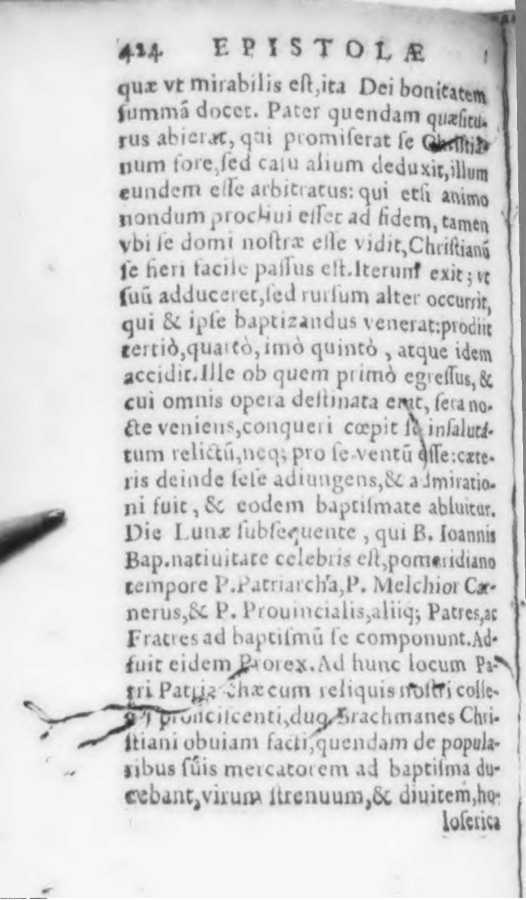 424 EPISTOLÆ
quæ vt mirabilis eſt, ita Dei bonitatem
ſummâ docet. Pater quendam quæſitu-
rus abierat, qui promiſerat ſe Chriſtia-
num fore, ſed caſu alium deduxit, illum
eundem eſſe arbitratus: qui etſi animo
nondum procliui eſſet ad fidem, tamen
vbi ſe domi noſtræ eſſe vidit, Chriſtianũ
ſe fieri facile paſſus eſt. Iterum exit; vt
ſuũ adduceret, ſed rurſum alter occurrit,
qui & ipſe baptizandus venerat: prodiit
tertiò, quartò, imò quintò, atque idem
accidit. Ille ob quem primò egreſſus, &
cui omnis opera deſtinata erat, ſera no-
cte veniens, conqueri cœpit ſe inſaluta-
tum relictũ, neq; pro ſe ventũ eſſe: cæte-
ris deinde ſeſe adiungens, & admiratio-
ni fuit, & eodem baptiſmate abluitur.
Die Lunæ ſubſequente, qui B. Ioannis
Bap. natiuitate celebris eſt, pomeridiano
tempore P. Patriarcha, P. Melchior Car-
nerus, & P. Prouincialis, aliiq; Patres, ac
Fratres ad baptiſmũ ſe componunt. Ad-
fuit eidem Prorex. Ad hunc locum Pa-
tri Patriarchæ cum reliquis noſtri colle-
gij proficiſcenti, duo Brachmanes Chri-
ſtiani obuiam facti, quendam de popula-
ribus ſuis mercatorem ad baptiſma du-
cebant, virum ſtrenuum, & diuitem, ho-
loſerica